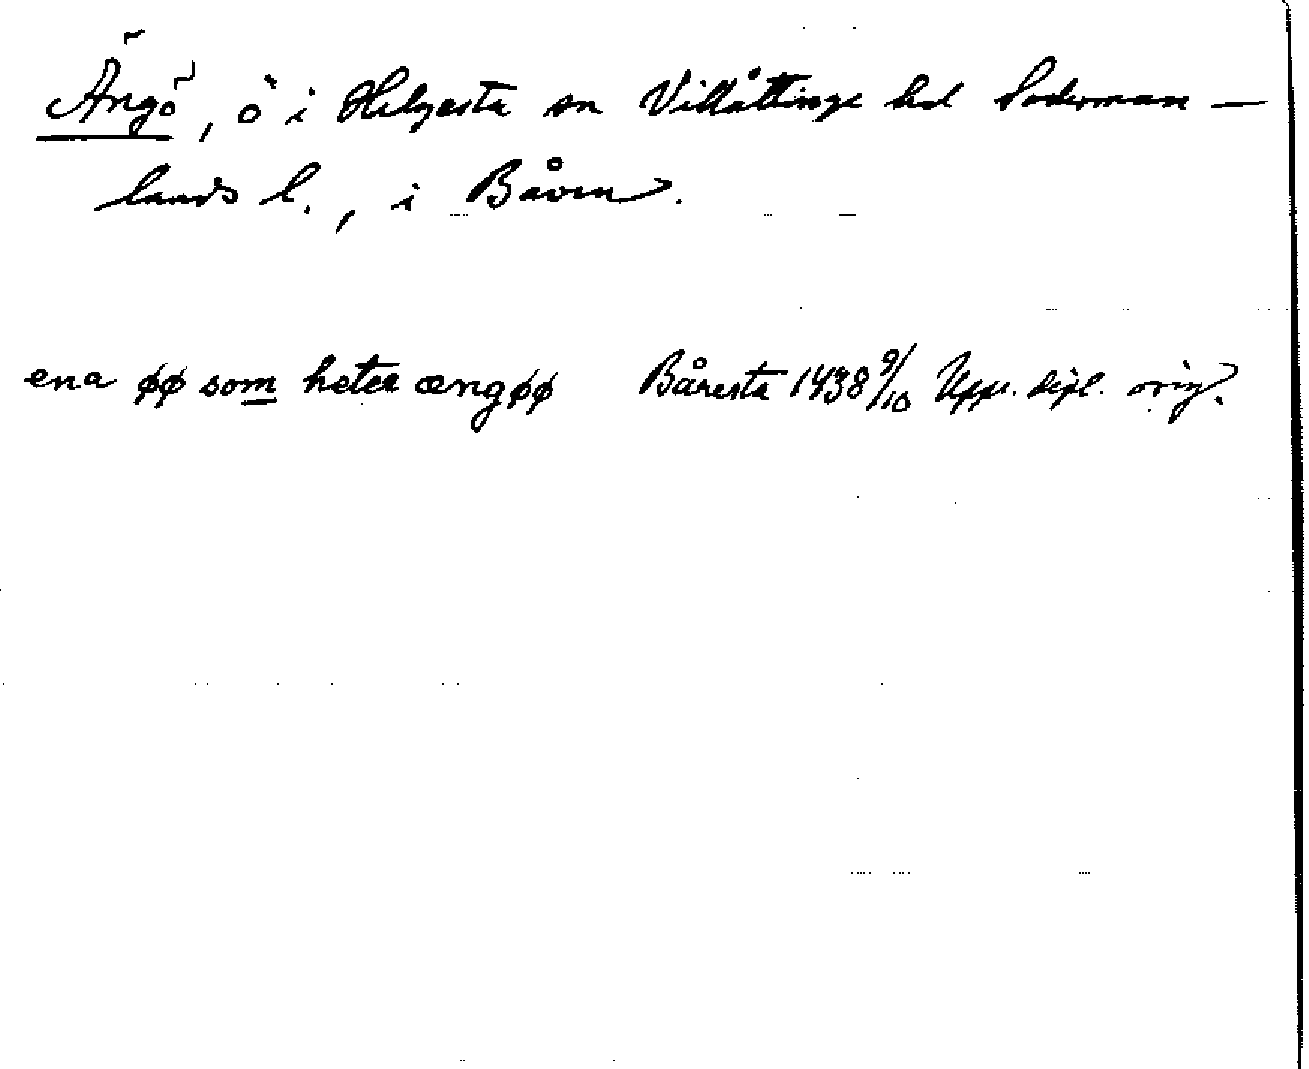 Ängö, ö i Helgesta sn Villåttinge hd Söderman-
lands l., i Båven.
ena øø som heter ængøø Båresta 1438 9/10 Upps. dipl. orig.